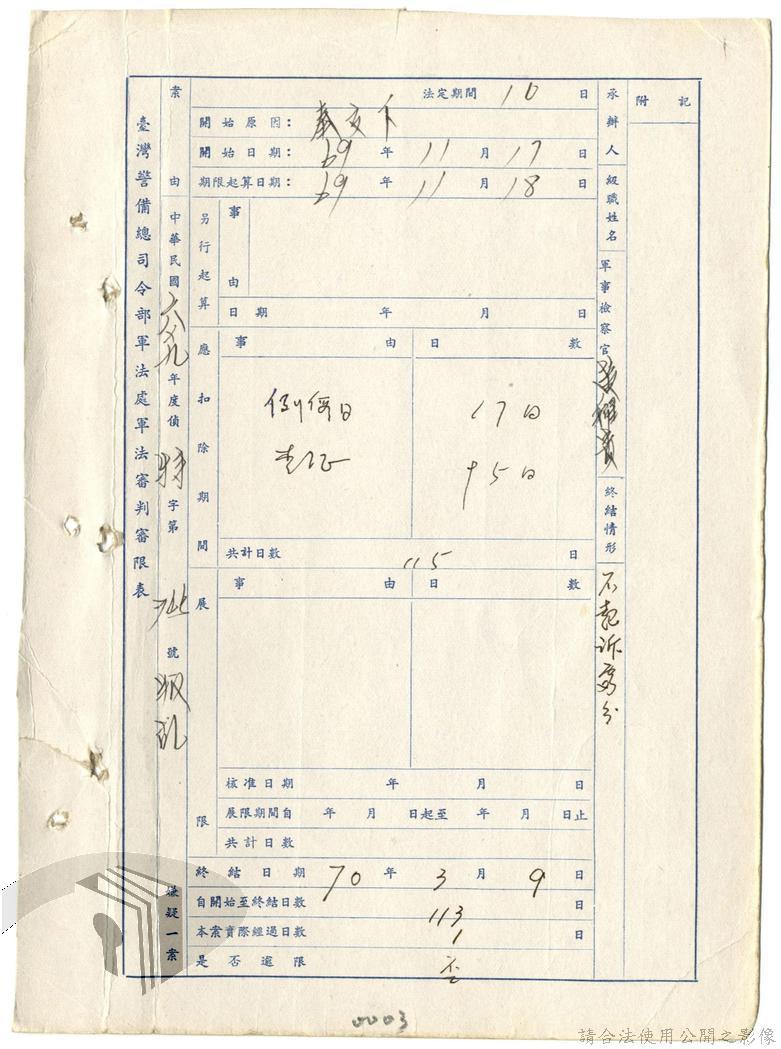 臺灣警備總司令部軍法處軍法審判審限表
案由
中華民國六九年度偵特字第
號叛亂嫌疑一案
法定期間 10 日
開始原因：
開始日期：69年11月17日
期限起算日期：69年11月18日
另行起算
事由
日期 年 月 日
應扣除期間
事由 日數
例假日 17日
查证 95日
共計日數 115 日
展限
事由 日數
核准日期 年 月 日
展限期間自 年 月 日起至 年 月 日止
共計日數
終結日期 70年3月9日
自開始至終結日數 113 日
本案實際經過日數 1 日
是否逾限 否
承辦人級職姓名
軍事檢察官
終結情形
不起訴處分
附記
0003
請合法使用公開之影像